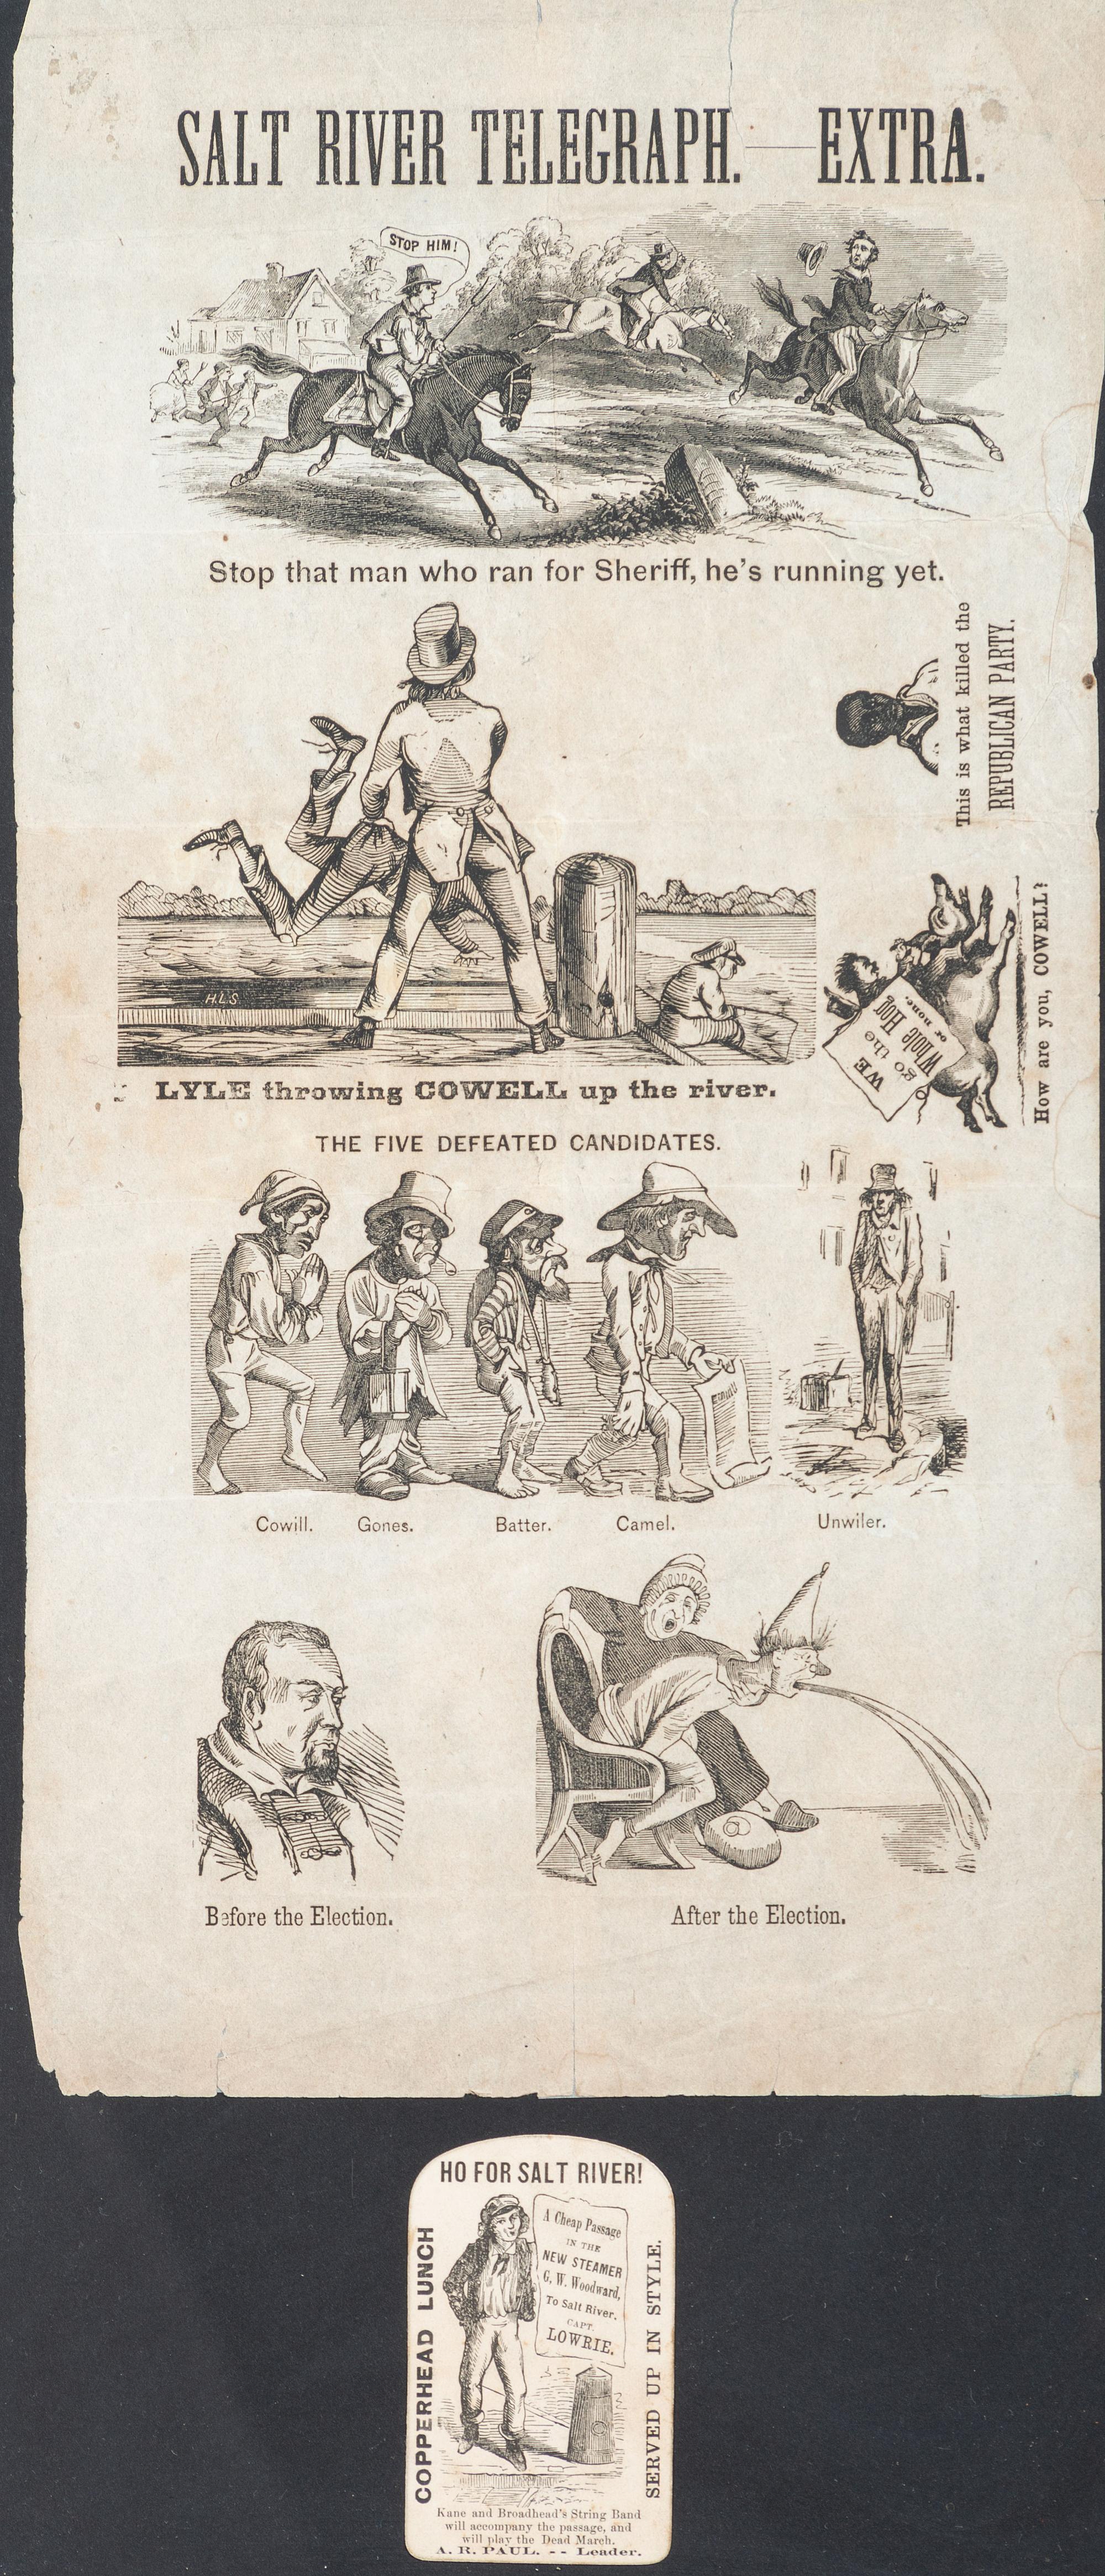 SALT RIVER TELEGRAPH.—EXTRA.
STOP HIM!
Stop that man who ran for Sheriff, he's running yet.
This is what killed the
REPUBLICAN PARTY.
H.L.S.
LYLE throwing COWELL up the river.
WE
go the
Whole Hog
or none.
How are you, COWELL?
THE FIVE DEFEATED CANDIDATES.
Cowill. Gones. Batter. Camel. Unwiler.
Before the Election. After the Election.
HO FOR SALT RIVER!
COPPERHEAD LUNCH
A Cheap Passage
IN THE
NEW STEAMER
G. W. Woodward,
To Salt River.
CAPT.
LOWRIE.
SERVED UP IN STYLE.
Kane and Broadhead's String Band
will accompany the passage, and
will play the Dead March.
A. R. PAUL. -- Leader.